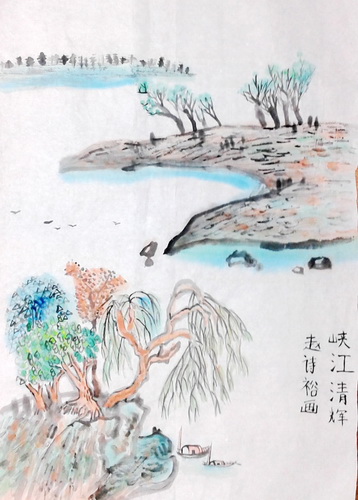 峡江清辉
赵诗裕画